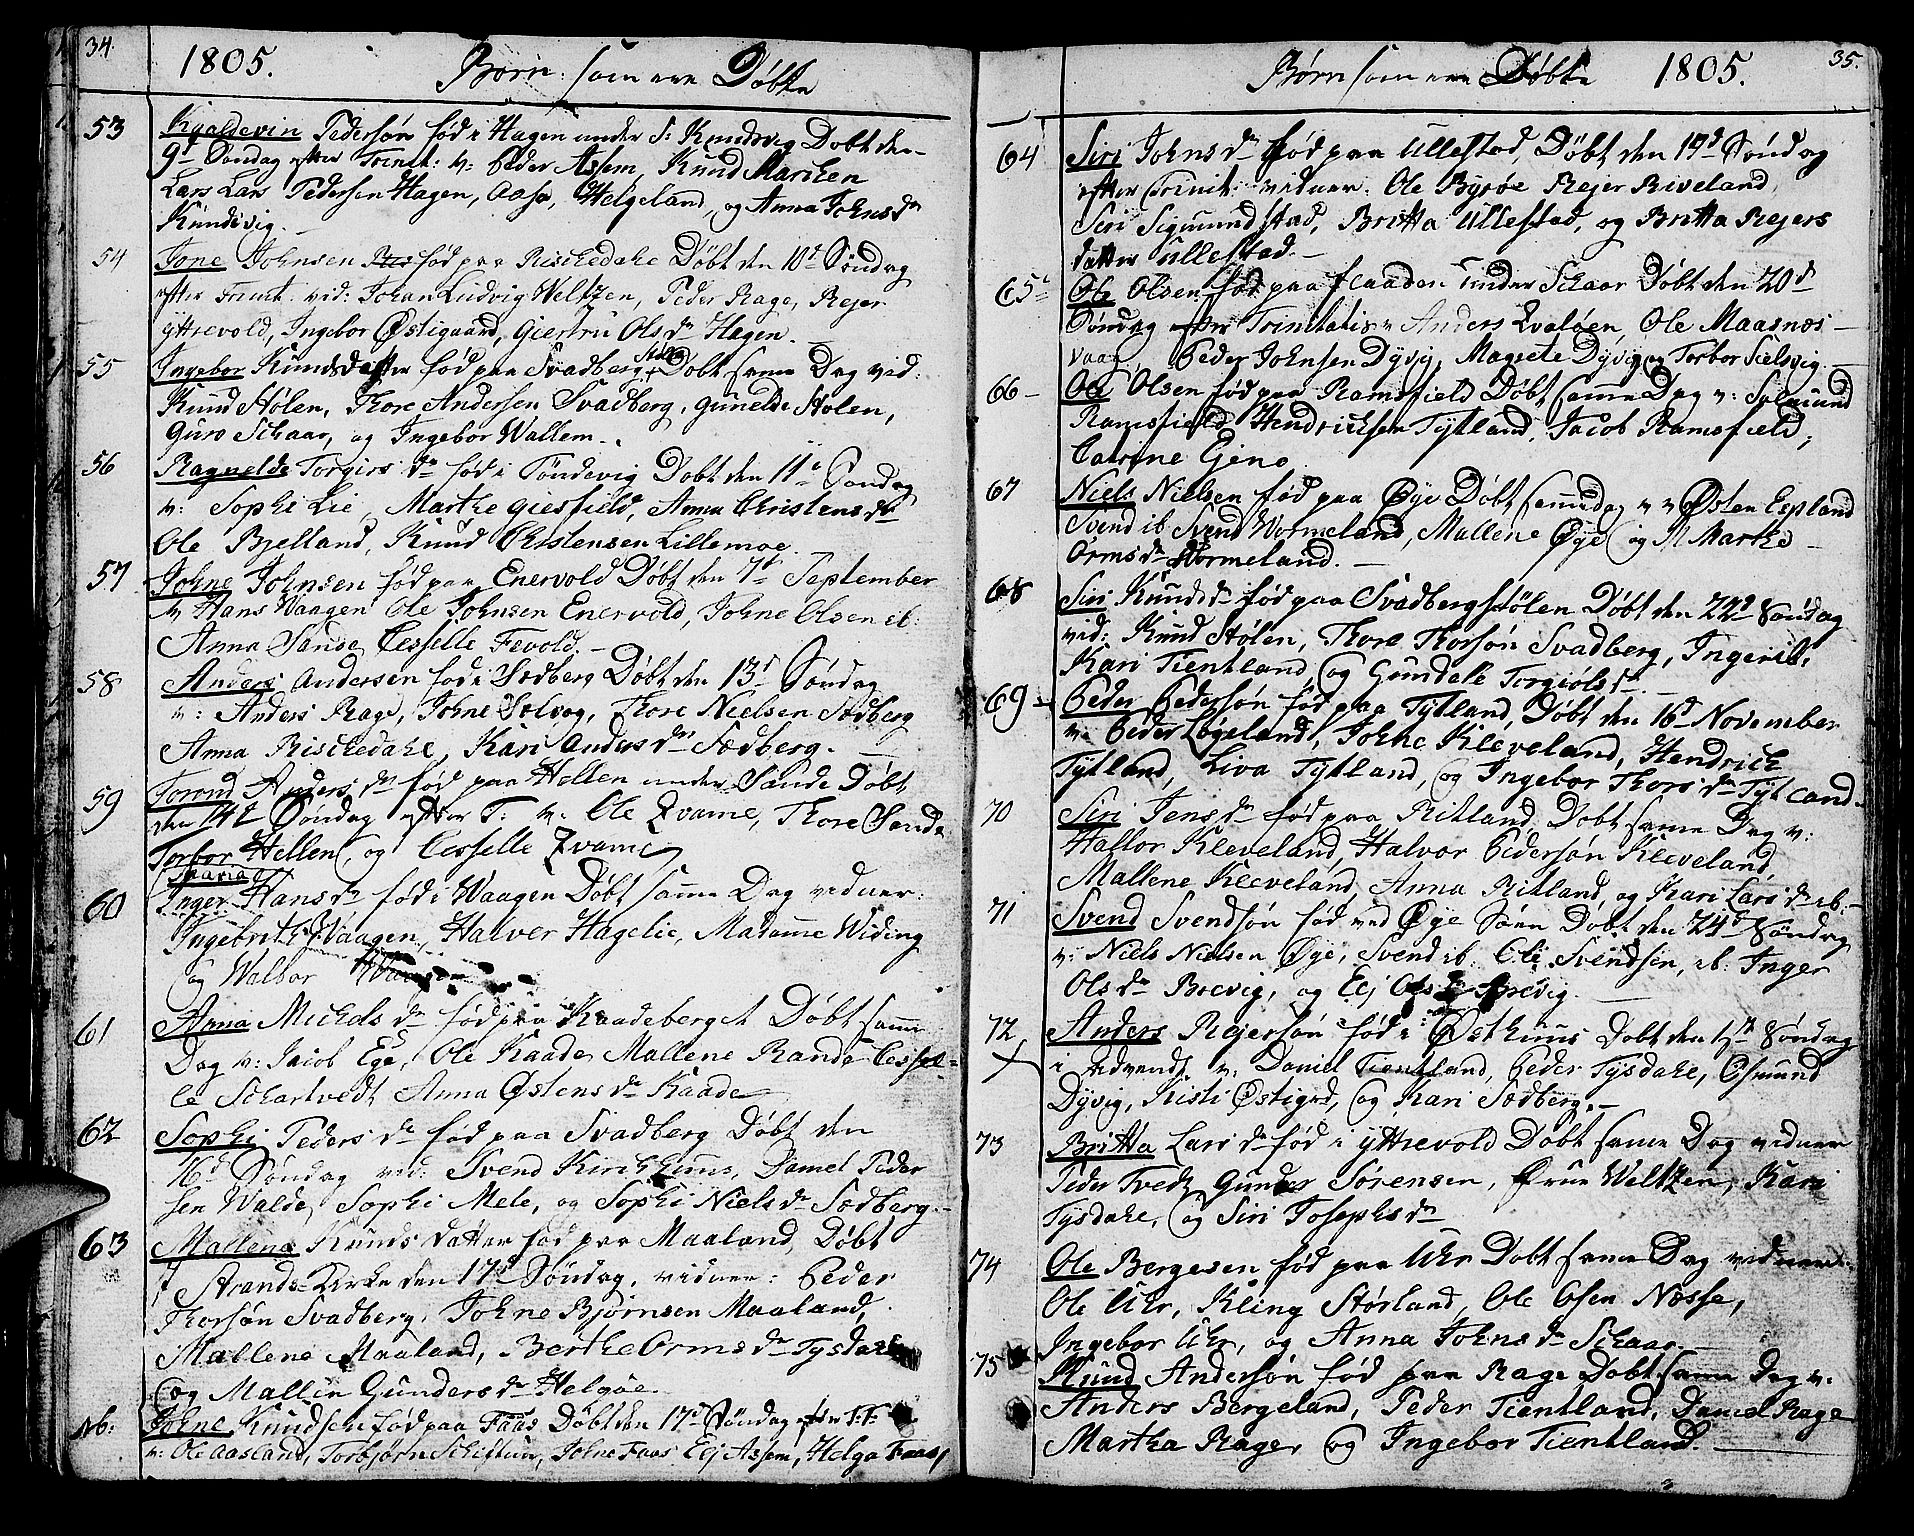 34.
1805. Børn som ere Døbte
53 Kialdevin Pedersøn fød i Hagen under S: Knudsvig Døbt den
9d Søndag efter Trinit: v: Peder Assem, Knud Marchen
Lars Lars Pedersen Hagen, Aasa, Helgeland, og Anna Johns dr
Kundsvig.
54 Tone Johnsen fød paa Rischedahe Døbt den 10d Søndag
efter Trinit. vid: Johan Ludvig Weltzen, Peder Rage, Rejer
Yttrevold, Ingebor Østigaard, Giertru Ols dr Hagen.
55 Ingebor Knudsdatter fød paa Svadberg Støln Døbt samme Dag vid:
Knud Stølen, Thore Andersen Svadberg, Gunelde Stølen,
Guro Schaar, og Ingebor Wallem.
56 Ragnelde Torgirs dr fød i Tøndevig Døbt den 11te Søndag
v: Sophi Lie, Marthe Giesfield, Anna Christens dr
Ole Bjelland, Knud Christensen Lillemoe.
57 Johne Johnsen fød paa Enervold Døbt den 7de September
v Hans Waagen Ole Johnsen Enervold, Johne Olsen ib:
Anna Sande Cesselle Fevold.
58 Anders Andersen fød i Sødberg Døbt den 13d Søndag
v: Anders Rage, Johne Solvog, Thore Nielsen Sødberg
Anna Rischedahe, Kari Anders dr Sødberg.
59 Torond Anders dr fød paa Hellen under Sande Døbt
den 14d Søndag efter T: v: Ole Qvame, Thore Sande
Torbor Hellen, og Cesselle Qvame
Maria
60 Inger Hans dr fød i Waagen Døbt samme Dag vidner:
Ingebrith Waagen, Halver Hagelie, Madamme Widing
og Walbor Waagen
61 Anna Michels dr fød paa Kaadeberget Døbt samme
Dag v: Jacob Ege, Ole Kaade, Mallene Rande Cessel-
le Schartvedt Anna Østens dr Kaade
62 Sophi Peders dr fød paa Svadberg Døbt den
16d Søndag vid: Svend Kirchhuus, Daniel Peder
sen Walde, Sophi Mele, og Sophi Niels dr Sødberg.
63 Mallena Knuds datter fød paa Maaland, Døbt
i Strands-Kirke den 17d Søndag, vidner: Peder
Thorsøn Svadberg, Johne Bjørnsen Maaland,
Mallene Maaland, Berthe Orms dr Tysdahe
og Mallin Gunders dr Helgøe.
Nb: Johne Knudsen fød paa Faas Døbt den 17d Søndag efter T.
v: Ole Aasland, Torbjørn Schiftuun, Johne Faas Elj Assem, Helga Faas,
35.
Børn som ere Døbte 1805.
64 Siri Johns dr fød paa Ullestad, Døbt den 19d Søndag
efter Trinit: vidner: Ole Byrøe Rejer Riveland,
Siri Sigmundstad, Britta Ullestad, og Britta Rejers
datter Ullestad.
65 Ole Olsen fød paa Flaaden under Schaar Døbt den 20d
Søndag efter Trinitatis v Anders Qvaløen, Ole Maasnæs-
vaag Peder Johnsen Dyvig, Magrete Dyvig og Torbor Sielsvig.
66 Ole Olsen fød paa Ramsfield Døbt samme Dag v:
Ramsfield, Hendrichsen Tytland, Jacob Ramsfield,
Catrine Ejene
67 Niels Nielsen fød paa Øye Døbt samme dag v Østen Espland
Svend ib Svend Wormeland, Mallene Øye og M Marthe
Orms dr Wormeland.
68 Siri Knuds dr fød paa Svadbergstølen Døbt den 22d Søndag
vid: Knud Stølen, Thore Thorsøn Svadberg, Inger ib.
Kari Tientland, og Gundale Torgiols dr.
69 Peder Pedersøn fød paa Tytland, Døbt den 16d November
v. Peder Løgeland, Johne Kleveland, Hendrich
Tytland, Liva Tytland, og Ingebor Thors dr Tytland
70 Siri Jens dr fød paa Ritland, Døbt samme Dag v:
Hallor Kleveland, Halvor Pedersøn Kleveland,
Mallene Kleveland Anna Ritland, og Kari Lars dr ib.
71 Svend Svendsøn fød ved Øye Søen Døbt den 24d Søndag
v: Niels Nielsen Øye, Svend ib. Ole Svendsen, ib. Inger
Ols dr Brevig, og Elj Ols dr Brevig.
72 Anders Rejersøn fød i Østhuus Døbt den 1ste Søndag
i Advendt v: Daniel Tientland, Peder Tysdahe, Osmund
Dyvig, Kisti Østigrd, og Kari Sødberg.
73 Britta Lars dr fød i Yttrevold Døbt samme Dag vidner
Peder Tvedt, Gunder Sørensen, Frue Weltzen, Kari
Tysdahe, og Siri Josephs dr
74 Ole Bergesen fød paa Uhr Døbt samme Dag vidner
Ole Uhr, Kling Størland, Ole Olsen Nesse,
Ingebor Uhr, og Anna Johns dr Schaar
75 Knud Andersøn fød paa Rage Døbt samme Dag v:
Anders Bergeland, Peder Tientland, Daniel Rage
Martha Rage, og Ingebor Tientland.